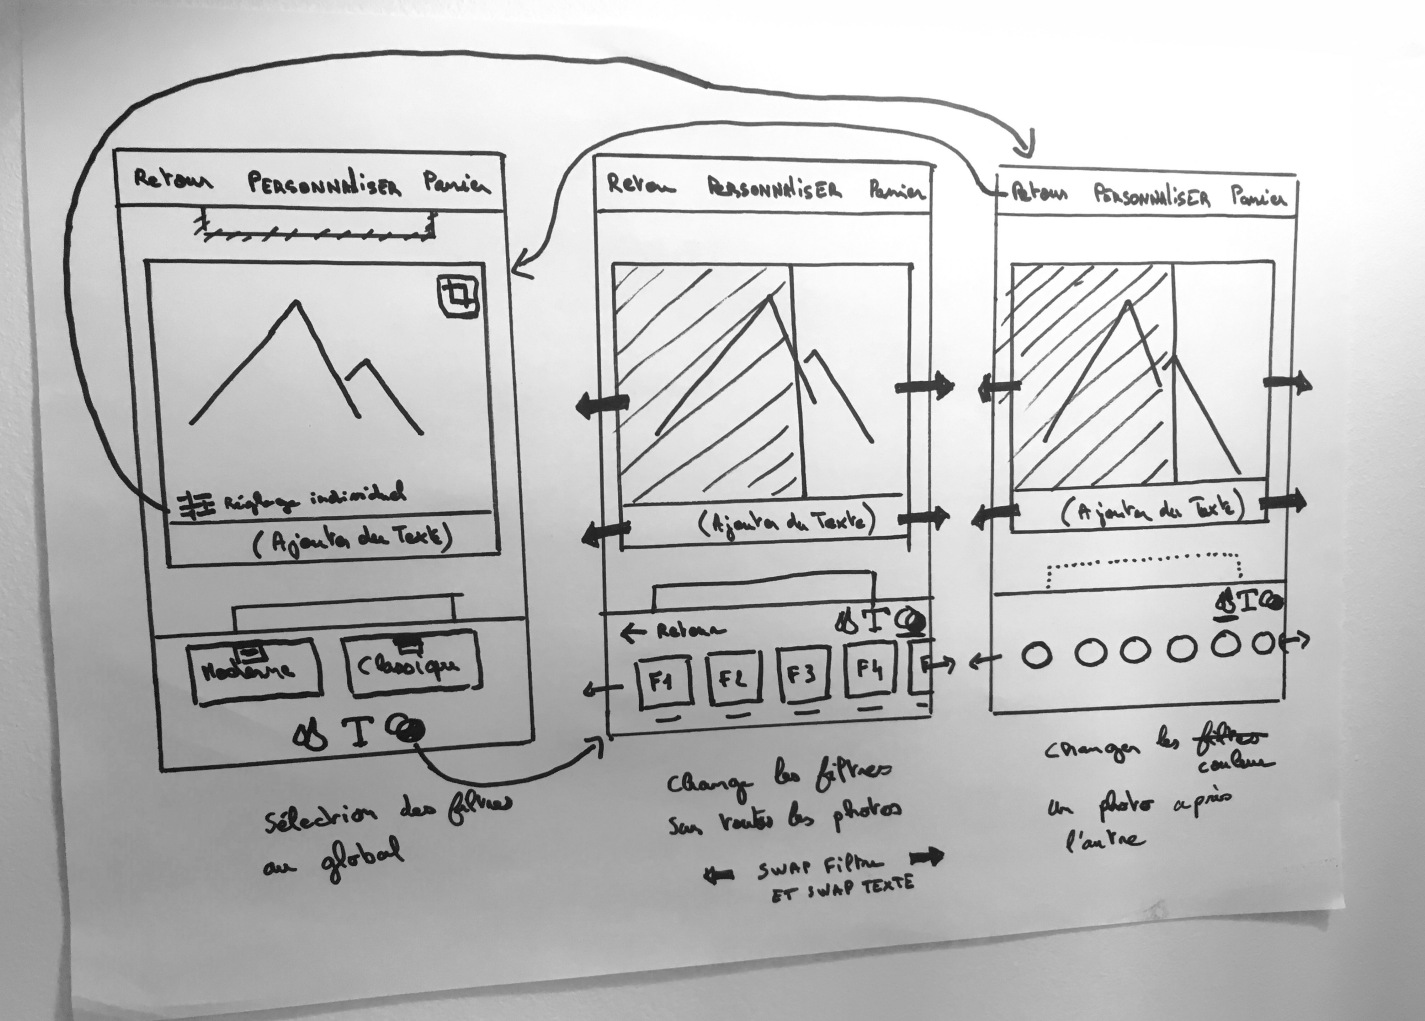 Retour PERSONNALISER Panier
Réglage individuel
(Ajouter du Texte)
Moderne Classique
T
Sélection des filtres
au global
Retour PERSONNALISER Panier
(Ajouter du Texte)
← Retour T
F1 F2 F3 F4 F
Change les filtres
sur toutes les photos
SWAP Filtre
ET SWAP TEXTE
Retour PERSONNALISER Panier
(Ajouter du Texte)
T
Changer les filtres
couleur
un photo après
l'autre